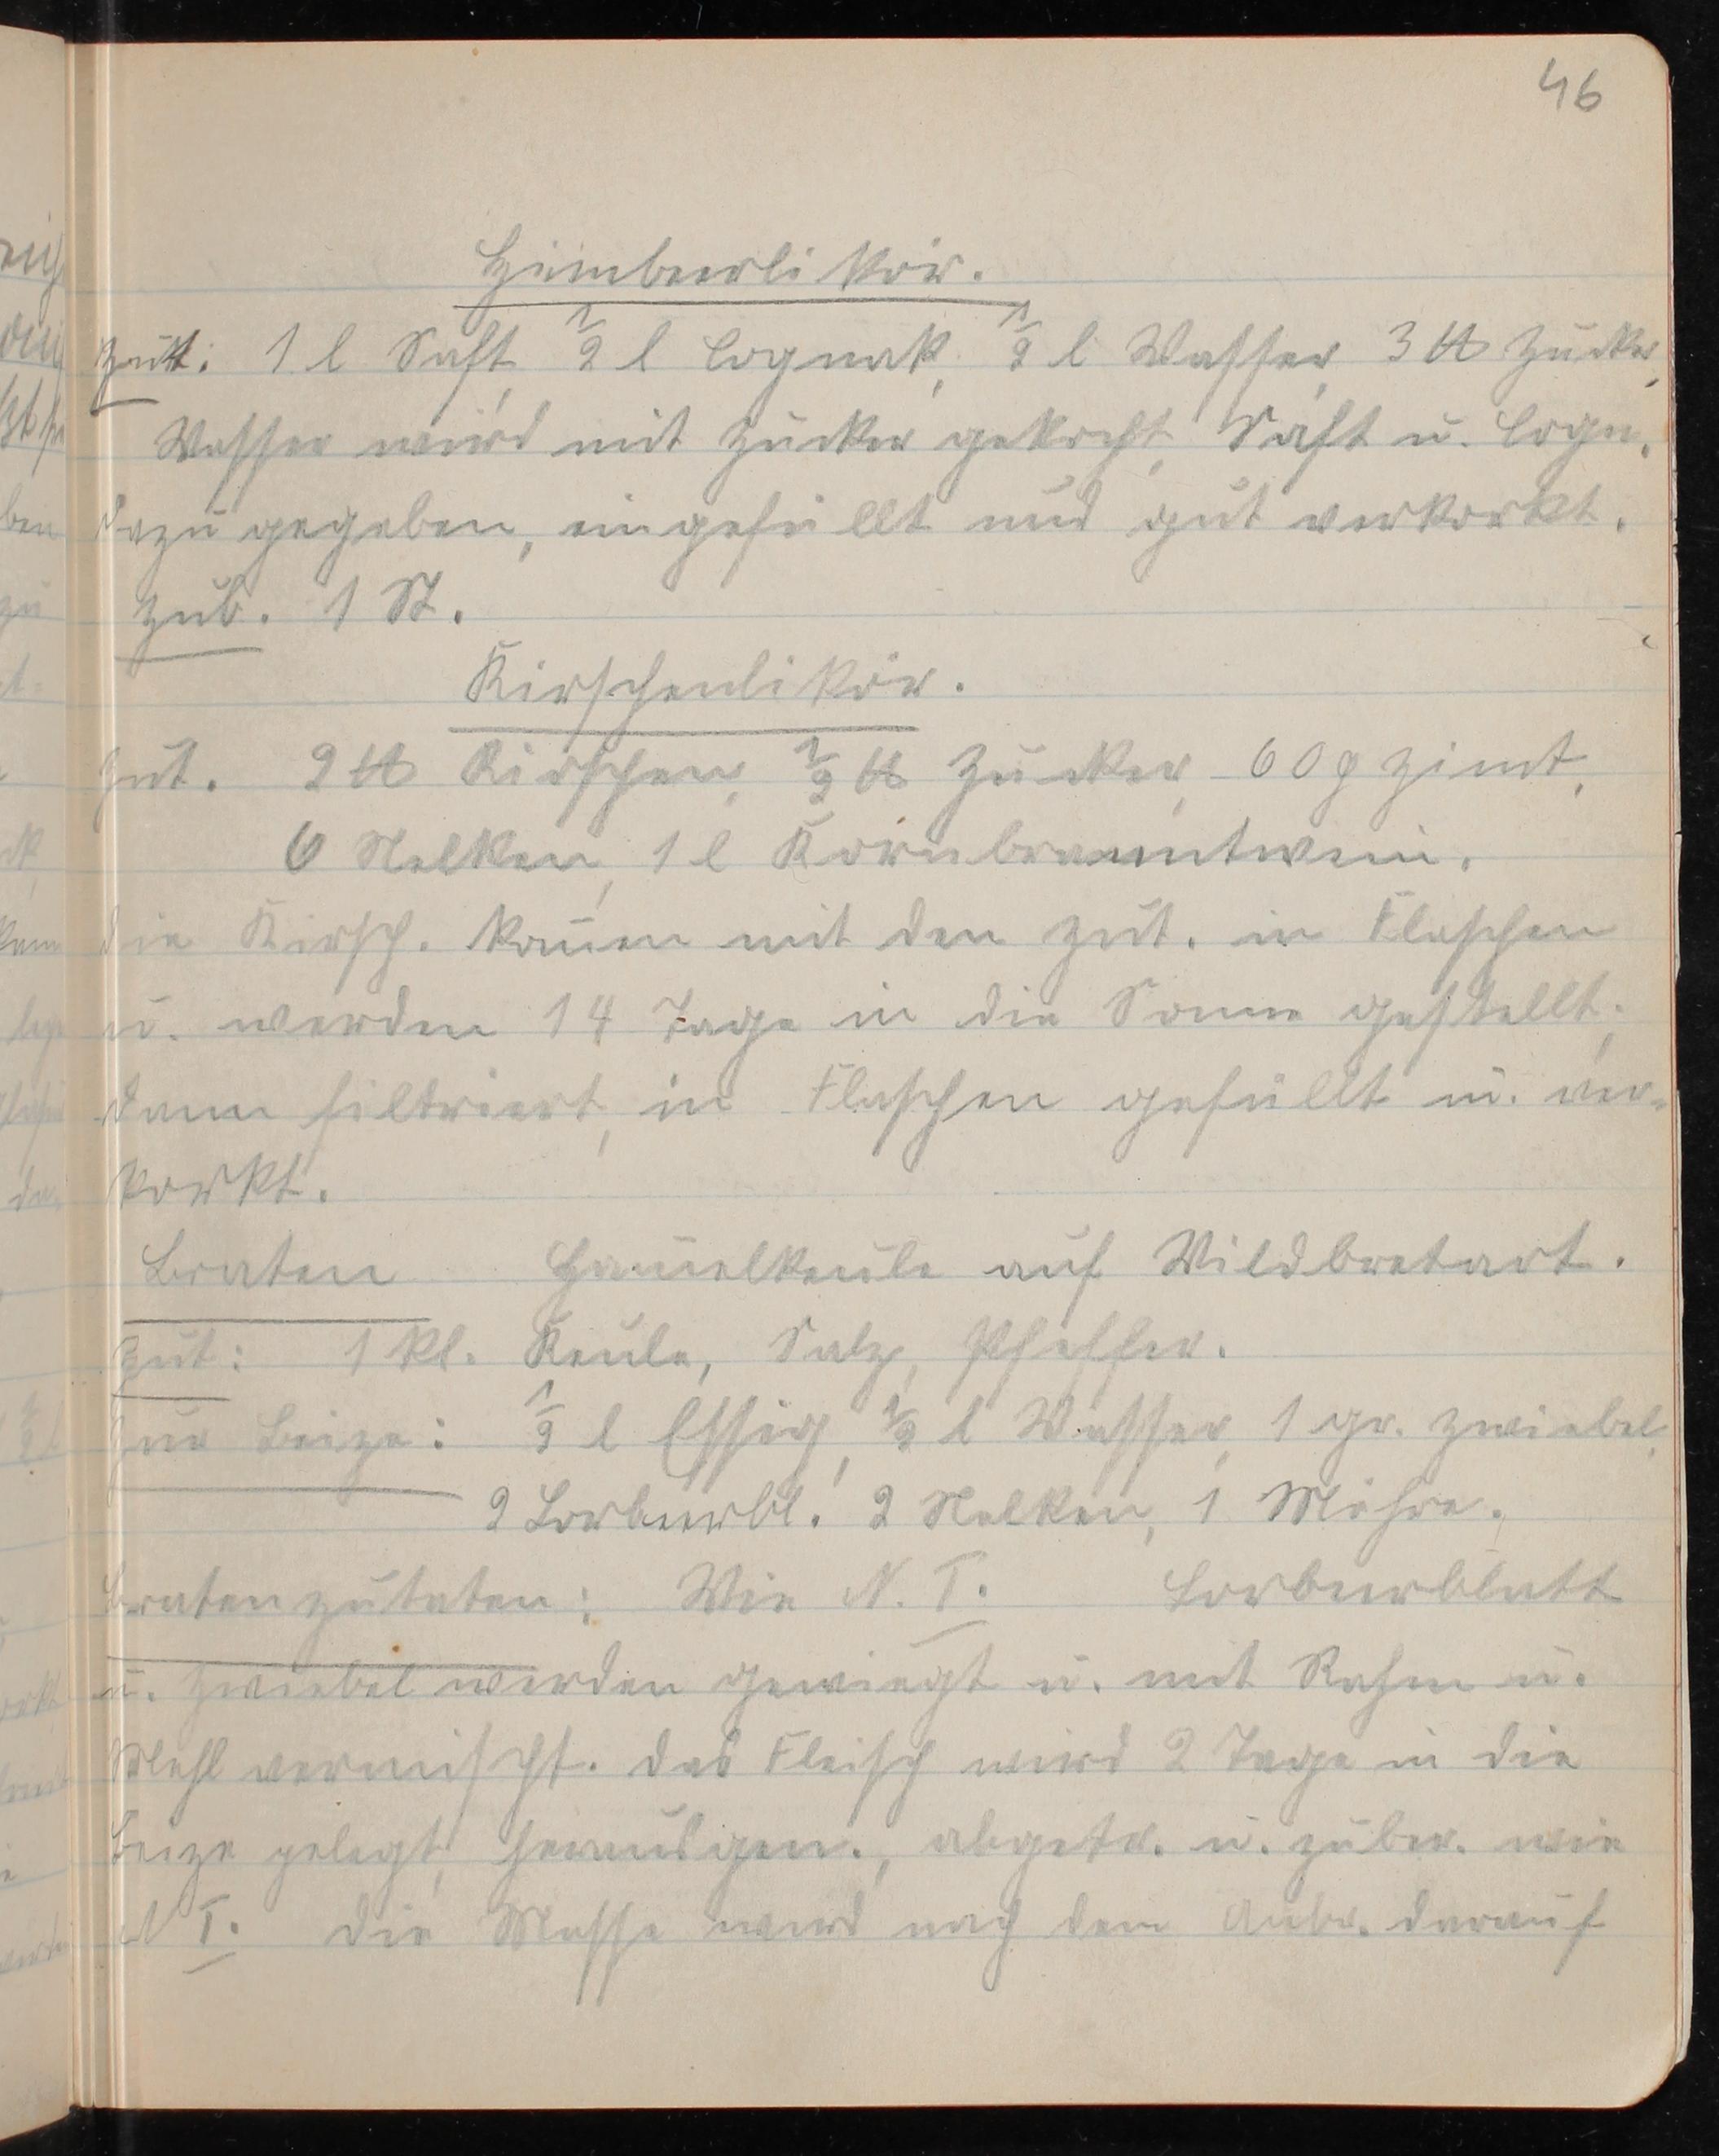 46
Himbeerlikör.
Zutt: 1 l Saft, 1/2 l Cognak, 1/2 l Wasser, 3 ℔ Zucker,
Wasser wird mit Zucker gekocht, Saft u. Cogn.
dazu gegeben, eingefüllt und gut verkorkt.
Zub. 1 St.
Kirschenlikör.
Zut. 2 ℔ Kirschen, 1/2 ℔ Zucker, 60 g Zimt,
6 Nelken, 1 l Kornbranntwein.
Die Kirsch. kom̄en mit den Zut. in Flaschen
u. werden 14 Tage in die Sonne gestellt,
dann filtriert, in Flaschen gefüllt u. ver-
korkt.
Braten Ham̄elkeule auf Wildbretart.
Zut: 1 kl. Keule, Salz, Pfeffer.
Zur Beize: 1/2 l Essig, 1/2 l Wasser, 1 gr. Zwiebel,
2 Lorbeerbl. 2 Nelken, 1 Möhre.
Bratenzutaten: Wie N. I. Lorbeerblatt
u. Zwiebel werden gewiegt u. mit Rahm u.
Mehl vermischt. Das Fleisch wird 2 Tage in die
Beize gelegt, herausgen., abgetr. u. zuber. wie
N I. Die Masse wird nach dem Anbr. darauf